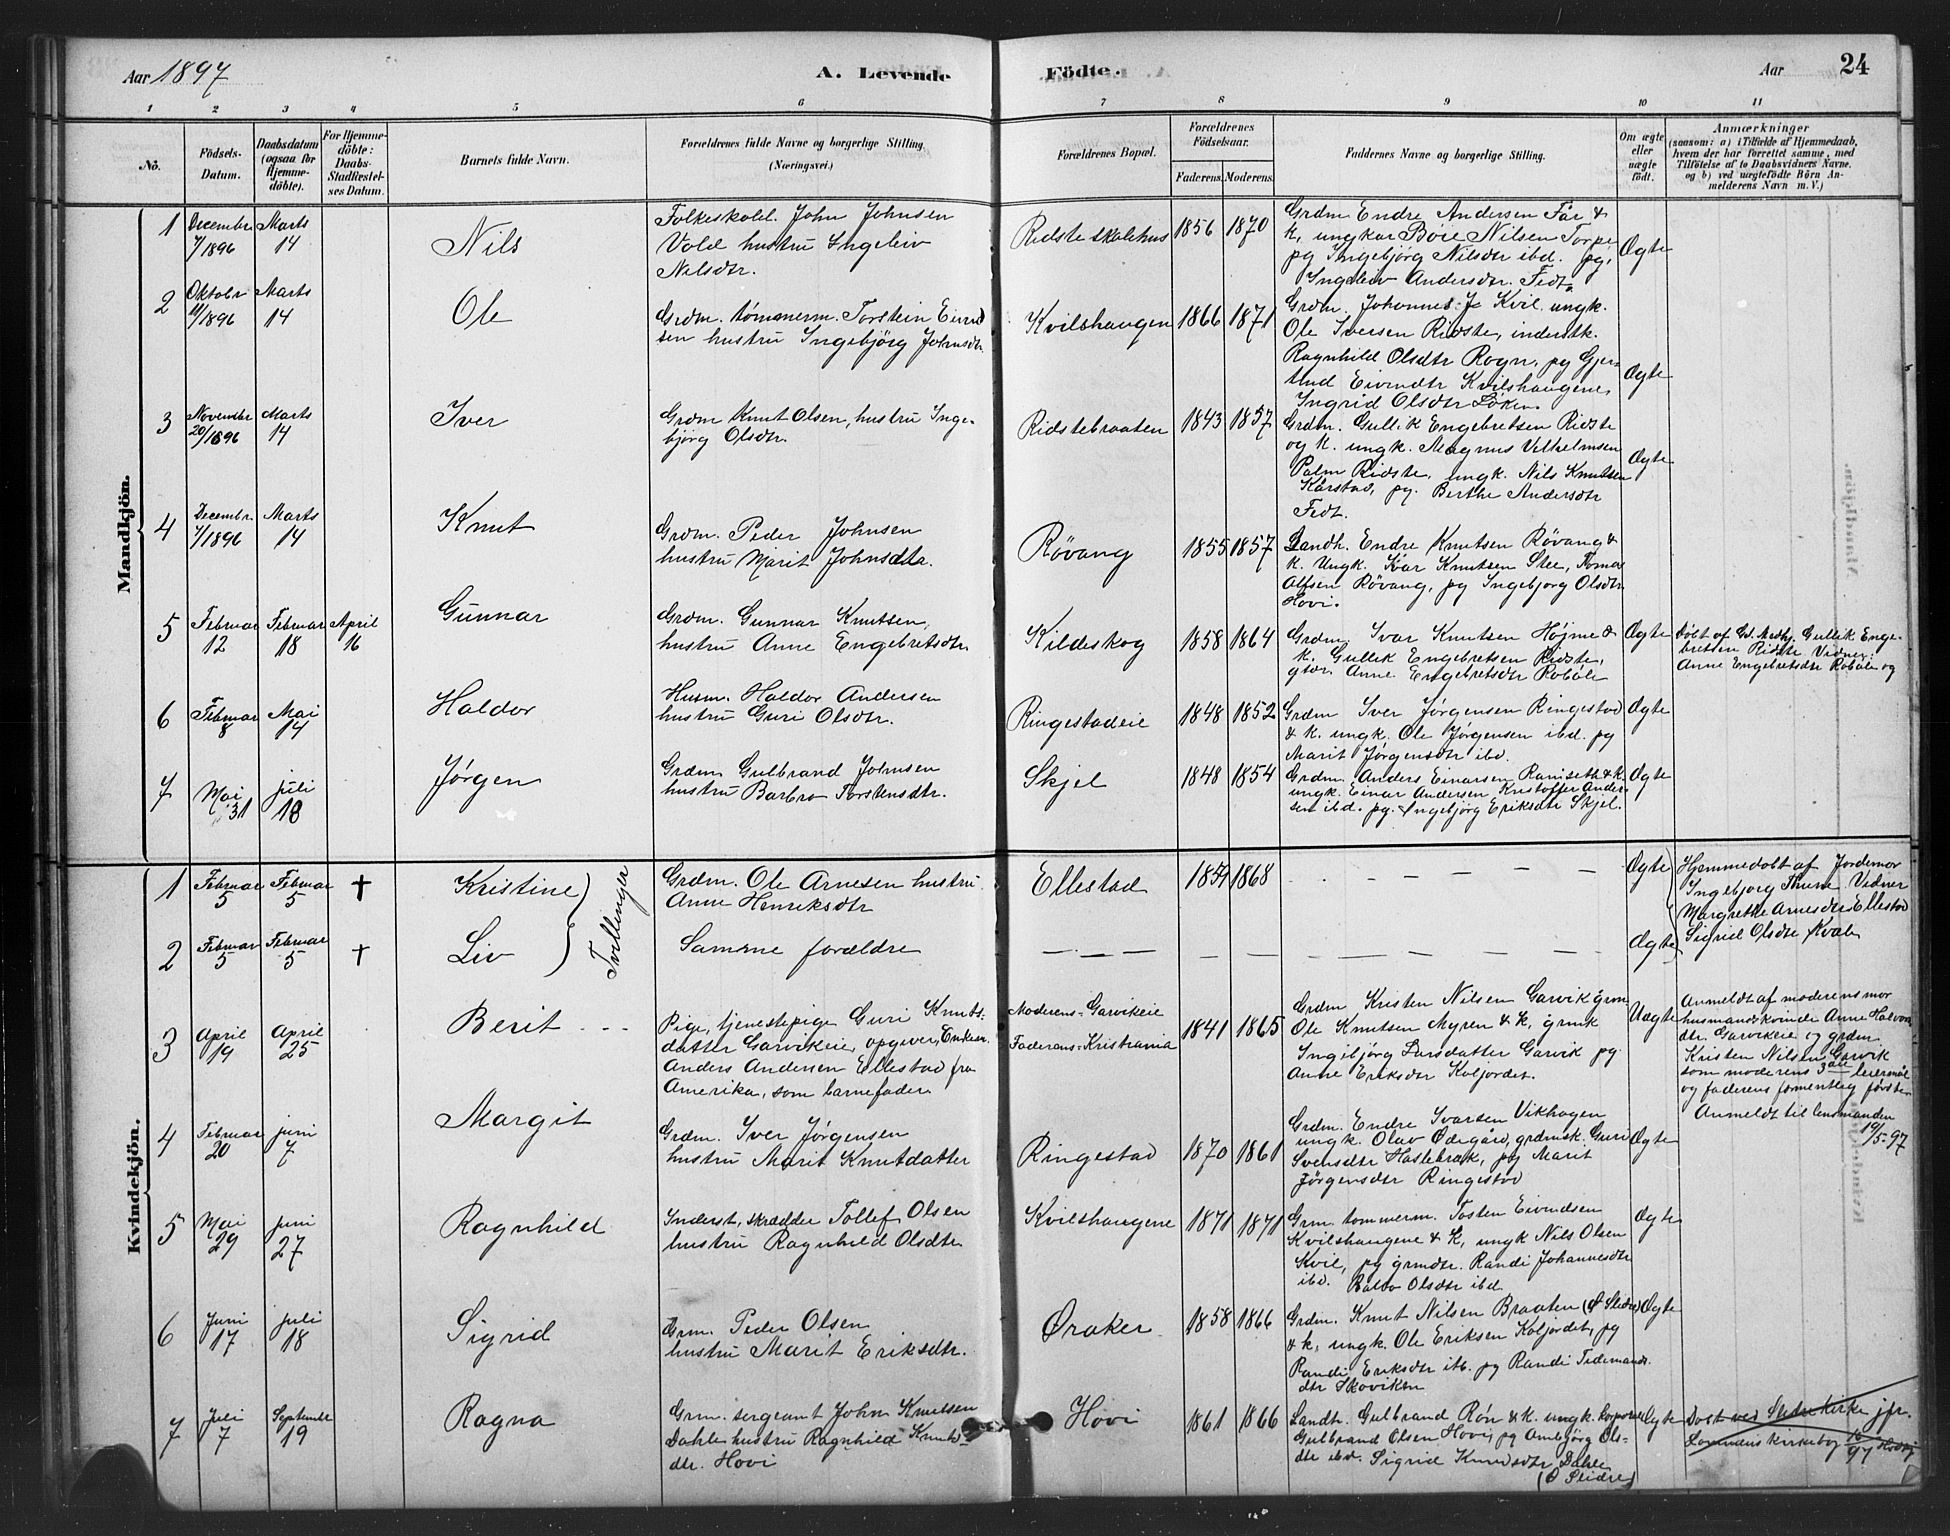 Aar 1897
A. Levende
Födte.
Aar
24
1 2 3 4 5 6 7 8 9 10 11
Nô.
Födsels-
Datum.
Daabsdatum
(ogsaa for
Hjemme-
döbte).
For Hjemme-
döbte:
Daabs-
Stadfæstel-
ses Datum.
Barnets fulde Navn.
Forældrenes fulde Navne og borgerlige Stilling.
(Næringsvei.)
Forældrenes Bopæl.
Forældrenes
Födselsaar.
Faderens. Moderens.
Faddernes Navne og borgerlige Stilling.
Om ægte
eller
uægte
födt.
Anmærkninger
(saasom: a) i Tilfælde af Hjemmedaab,
hvem der har forrettet samme, med
Tilföielse af to Daabsvidners Navne,
og b) ved uægtefödte Börn An-
melderens Navn m. V.)
Mandkjön.
1
Decembr
7/1896
Marts
14
Nils
Folkeskolel. John Johnsen
Vold hustru Ingeleiv
Nilsdtr.
Ridste skolehus
1856 1870
Grdm Endre Andersen Før &
k, ungkar Boie Nilsen Torpe
pg Ingebjörg Nilsdtr ibd. pg,
Ingeleiv Andersdtr. Fedt.
Ægte
2
Oktobr
/1896
Marts
14
Ole
Grdm. tømmerm. Torstein Eivind
sen hustru Ingebjörg Johnsdtr.
Kvilshaugen
1866 1871
Grdm. Johannes J. Kvil. ungk.
Ole Iversen Ridste, inderstk.
Ragnhild Olsdtr Rogn, pg Gjer-
trud Eivindtr Kvilshaugene,
Ingrid Olsdtr Løken.
Ægte
3
Novembr
20/1896
Marts
14
Iver
Grdm Knut Olsen, hustru Inge-
björg Olsdtr.
Ridstebraaten
1843 1857
Grdm. Gullik Engebretsen Ridste
og k. ungk. Magnus Vilhelmsen
Palm Ridste, ungk. Nils Knutsen
Kårstad, pg. Berthe Andersdtr
Fedt.
Ægte
4
Decembr.
7/1896
Marts
14
Knut
Grdm. Peder Johnsen
hustru Marit Johnsdta.
Røvang
1855 1857
Landh. Endre Knutsen Røvang &
k. Ungk. Ivar Knutsen Stee, Tomas
Alfsen Røvang, pg Ingebjorg Olsdtr
Hovi.
5
Februar
12
Februar
18
April
16
Gunnar
Grdm. Gunnar Knutsen,
hustru Anne Engebretsdtr.
Kildeskog
1858 1864
Grdm. Ivar Knutsen Højme &
k. Gullik Engebretsen Ridste,
gtdr. Anne Engebretsdtr Robøle
Ægte
Døbt af Gullik Enge-
bretsen Ridste Vidner:
Anne Engebretsdtr Robøle og
6
Februar
8
Mai
14
Haldor
Husm. Haldor Andersen
hustru Guri Olsdtr.
Ringestadeie
1848 1852
Grdm Iver Jørgensen Ringestad
& k. ungk. Ole Jørgensen ibd. pg
Marit Jørgensdtr ibd.
Ægte
7
Mai
31
juli
18
Jørgen
Grdm Gulbrand Johnsen
hustru Barbro Torstensdtr.
Skjel
1848 1854
Grdm. Anders Einarsen Ramseth & k
ungk. Einar Andersen, Kristoffer Ander-
sen ibd. pg. Ingebjörg Eriksdtr Skjel.
Ægte
Kvindekjön.
1
Februar
5
Februar
5
†
Kristine
Tvillinger
Grdm. Ole Arnesen hustru
Anne Henriksdtr
Ellestad
1868
Ægte
Hjemmedøbt af Jordemor
Ingebjorg Thune. Vidner
Margrethe Arnesdtr Ellestad
Sigrid Olsdtr Kvale
2
Februar
5
Februar
5
†
Liv
Samme forældre
Ægte
3
April
19
April
25
Berit
Pige, tjenestepige Guri Knuts-
datter Garvikeie, opgiver, Enkem.
Anders Andersen Ellestad fra
Amerika, som barnefader.
Moderens= Garvikeie
Faderens= Kristiania
1841 1865
Grdm Kristen Nilsen Garvik grm.
Ole Knutsen Myren & k, grmk
Ingibjörg Larsdatter Garvik pg.
Anne Eriksdtr Koljordet.
Uægte
Anmeldt af moderens mor
husmandskvinde Anne Halvors
dtr. Garvikeie og grdm.
Kristen Nilsen Garvik
som moderens 3die leiermål
og faderens formentlig første.
Anmeldt til lensmanden
19/5-97
4
Februar
20
juni
7
Margit
Grdm. Iver Jørgensen
hustru Marit Knutdatter
Ringestad
1870 1861
Grdm. Endre Ivarsen Vikhagen
ungk. Olav Ødegård, grdmsk. Guri
Svensdtr Haslebræk, pg Marit
Jörgensdtr Ringestad
Ægte
5
Mai
29
juni
27
Ragnhild
Inderst, skrædder Tollef Olsen
hustru Ragnhild Olsdtr.
Kvilshaugene
1871 1871
Grm. tømmerm. Tosten Eivindsen
Kvilshaugene & k, ungk Nils Olsen
Kvil, pg grmdtr. Randi Johannesdtr
ibd. Olsdtr ibd.
Ægte
6
Juni
17
juli
18
Sigrid
Grm. Peder Olsen
hustru Marit Eriksdtr.
Øraker
1858 1866
Grdm. Knut Nilsen Braaten (Ø Slidre)
& k, ungk. Ole Eriksen Koljordet, pg
Randi Eriksdtr itb. pg Randi Tidemands
dtr Skoviken
Ægte
7
Juli
7
September
19
Ragna
Grm. sergeant John Knutsen
Dahle hustru Ragnhild Knuts-
dtr. Hovi
Hovi
1861 1866
Landh. Gulbrand Røn & k. ungk. korporal
Gulbrand Olsen Hovi, pg Ambjörg Ols-
dtr ibd. Sigrid Knudsdtr Dahle
(Ø Slidre)
Ægte
Døbt ved Slidre kirke jfr.
Lomens kirkebog
97